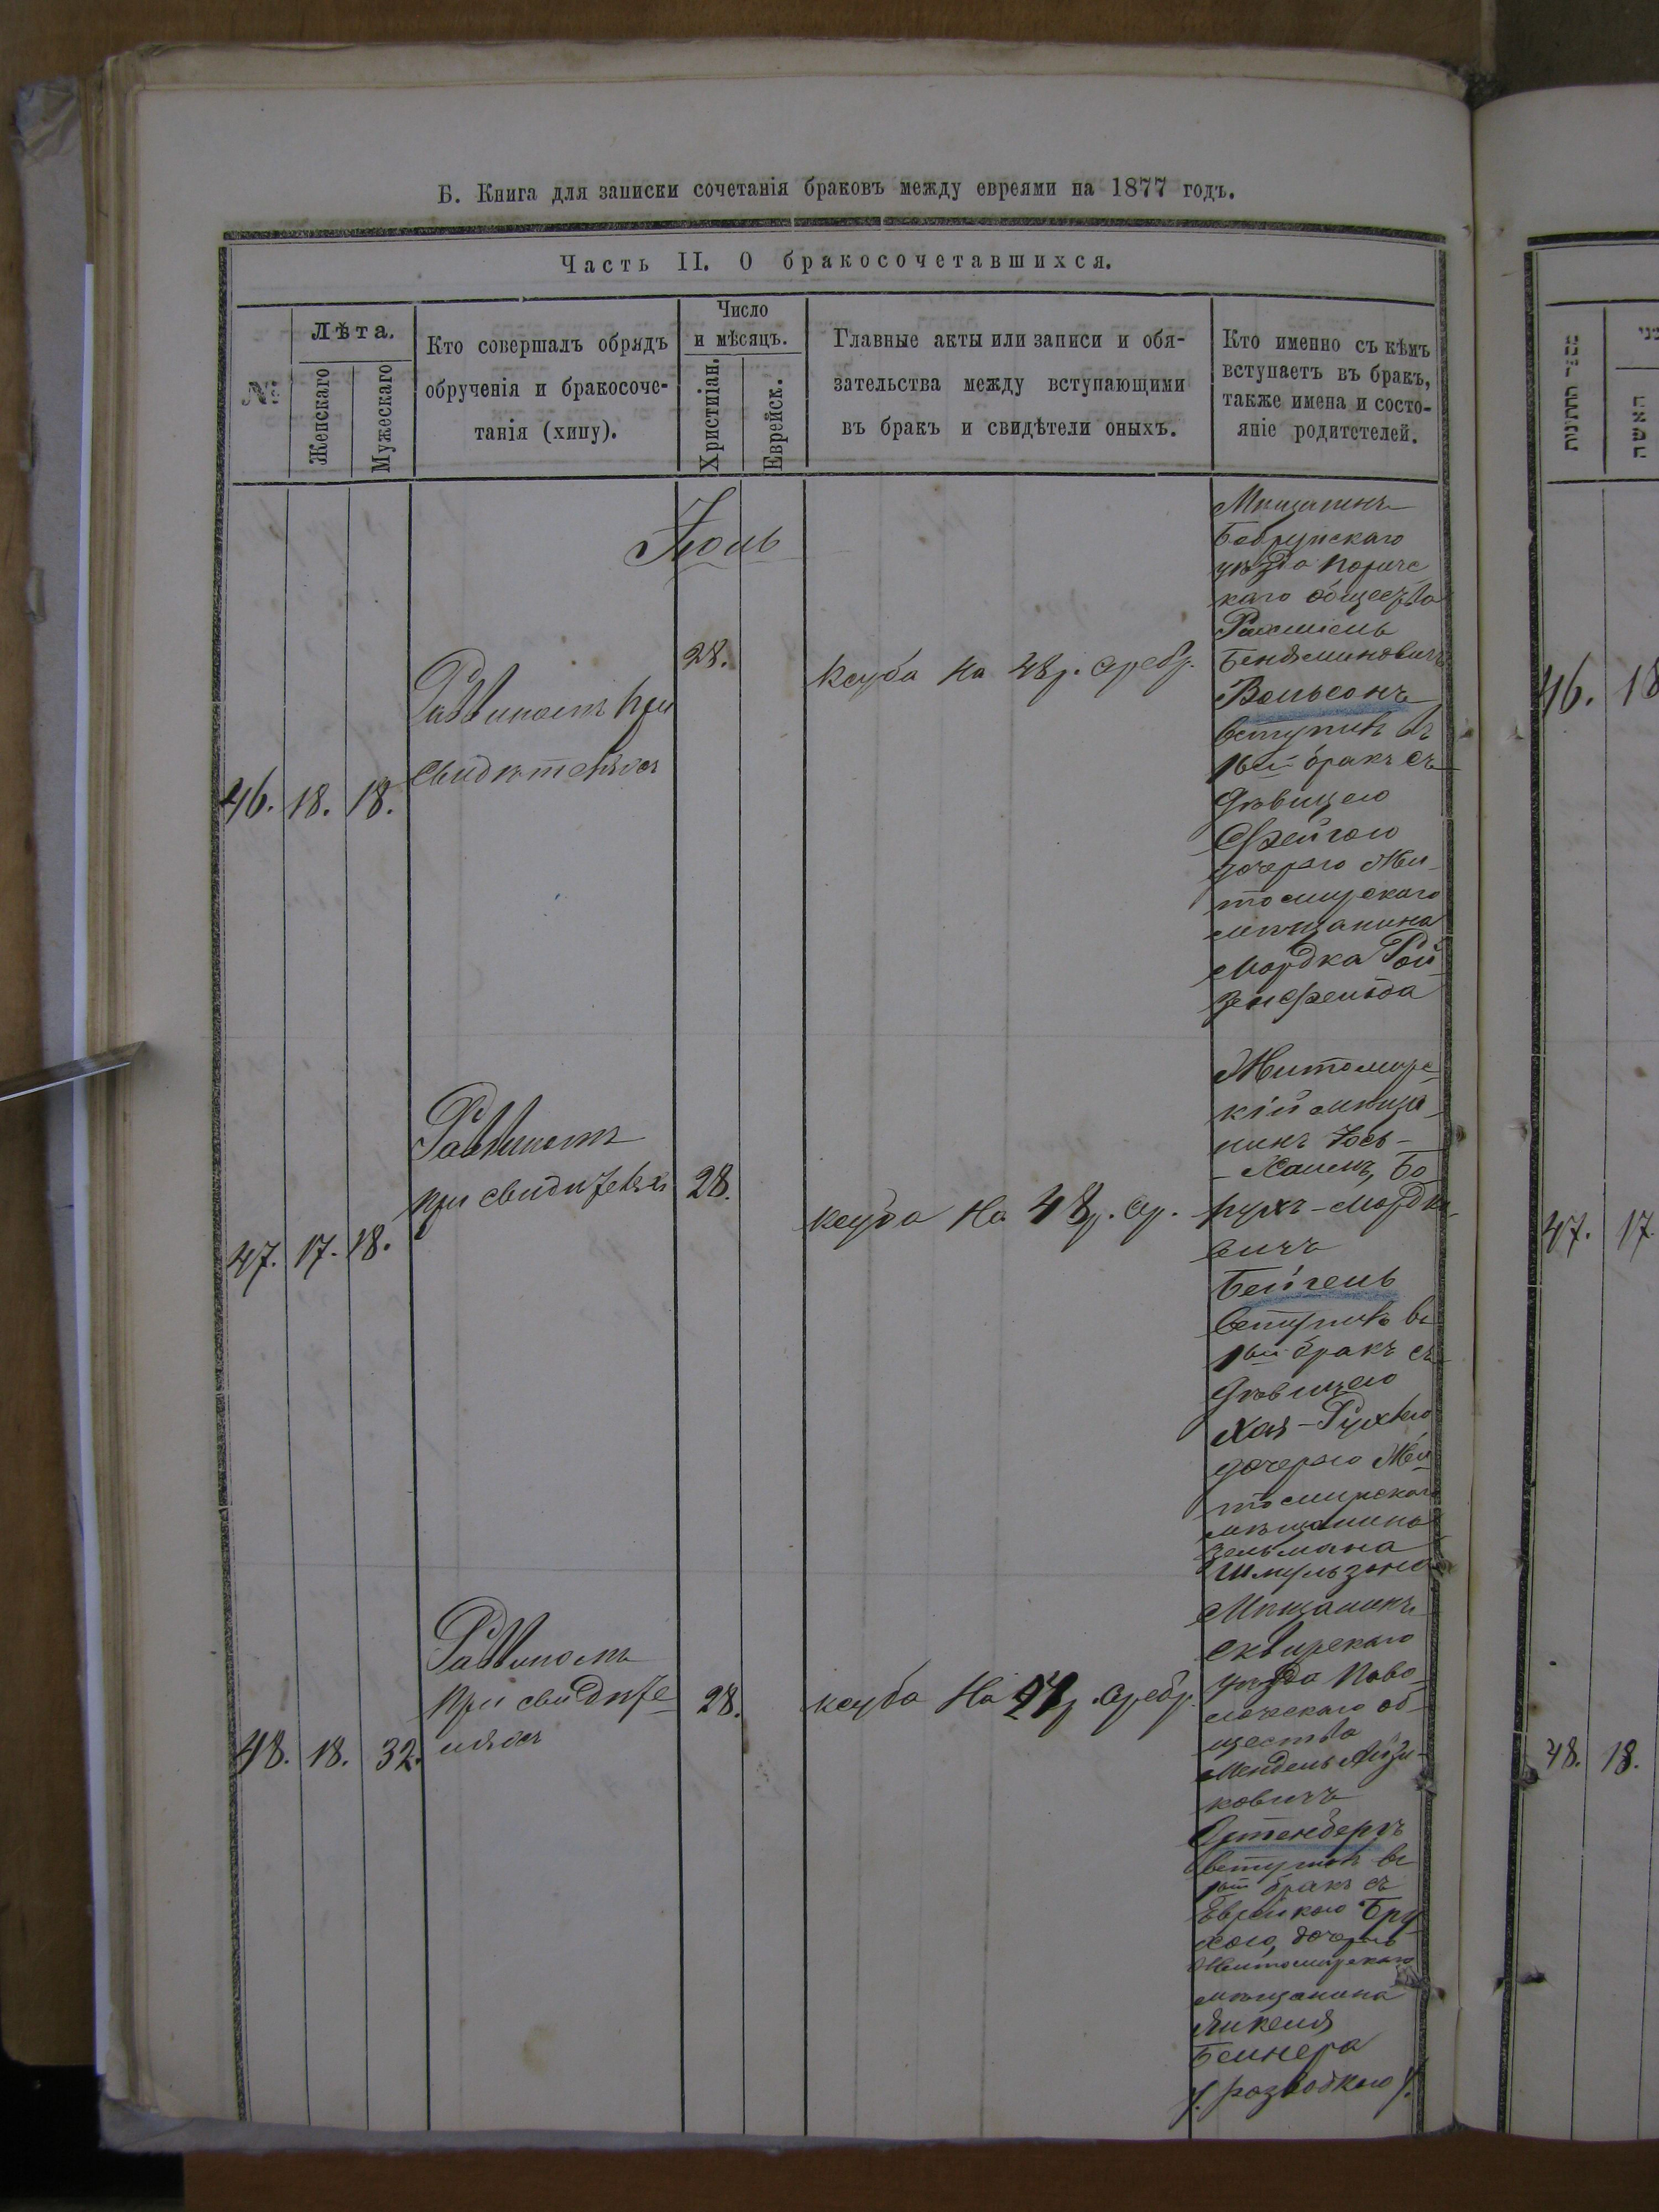 Б. Книга для записки сочетанія браковъ между евреями на 1877 годъ.
Часть II. О бракосочетавшихся.
№
Лѣта.
Женскаго
Мужескаго
Кто совершалъ обрядъ
обрученія и бракосоче-
танія (хипу).
Число
и мѣсяцъ.
Христиіан.
Еврейск.
Главные акты или записи и обя-
зательства между вступающими
въ бракъ и свидѣтели оныхъ.
Кто именно съ кѣмъ
вступаетъ въ бракъ,
также имена и состо-
яніе родитетелей.
Іюль
46. 18. 18.
Раввиномъ при
свидѣтеляхъ
28.
Ксуба на 48 р. сребр.
Мещанинъ
Бобруйскаго
уѣзда Париче
каго общества
Рахміель
Беняминовичъ
Вольсонъ
вступилъ въ
1ый бракъ съ
дѣвицею
Фейгою
дочерью Жи-
томирскаго
мѣщанина
Мордка Рой
зенфельда
47. 17. 18.
Раввиномъ
при свидѣтеляхъ
28.
ксуба на 48 р. ср.
Житомирс-
кій мѣща-
нинъ Іось-
-Хаимъ, Бо
рухъ-Мордко-
вичъ
Бейгель
вступилъ въ
1ый бракъ съ
дѣвицею
Хая-Рухлею
дочерью Жи-
томирскаго
мѣщанина
Зельмана
Шмульзона
48. 18. 32.
Раввиномъ
при свидѣте-
ляхъ
28.
ксуба на 48 р. сребр.
Мѣщанинъ
Сквирскаго
уѣзда Паво-
лочскаго об-
щества
Мендель Айзи-
ковичъ
вступилъ въ
1ый бракъ съ
Еврейкою Бру
хою, дочерью
Житомирскаго
мѣщанина
Янкеля
/. разводкою /.
מספר החתונות
האשה
46. 18
47. 17.
48. 18.